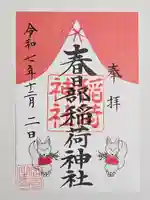 奉拝
稲荷
神社
春日部稲荷神社
令和七年十二月二日